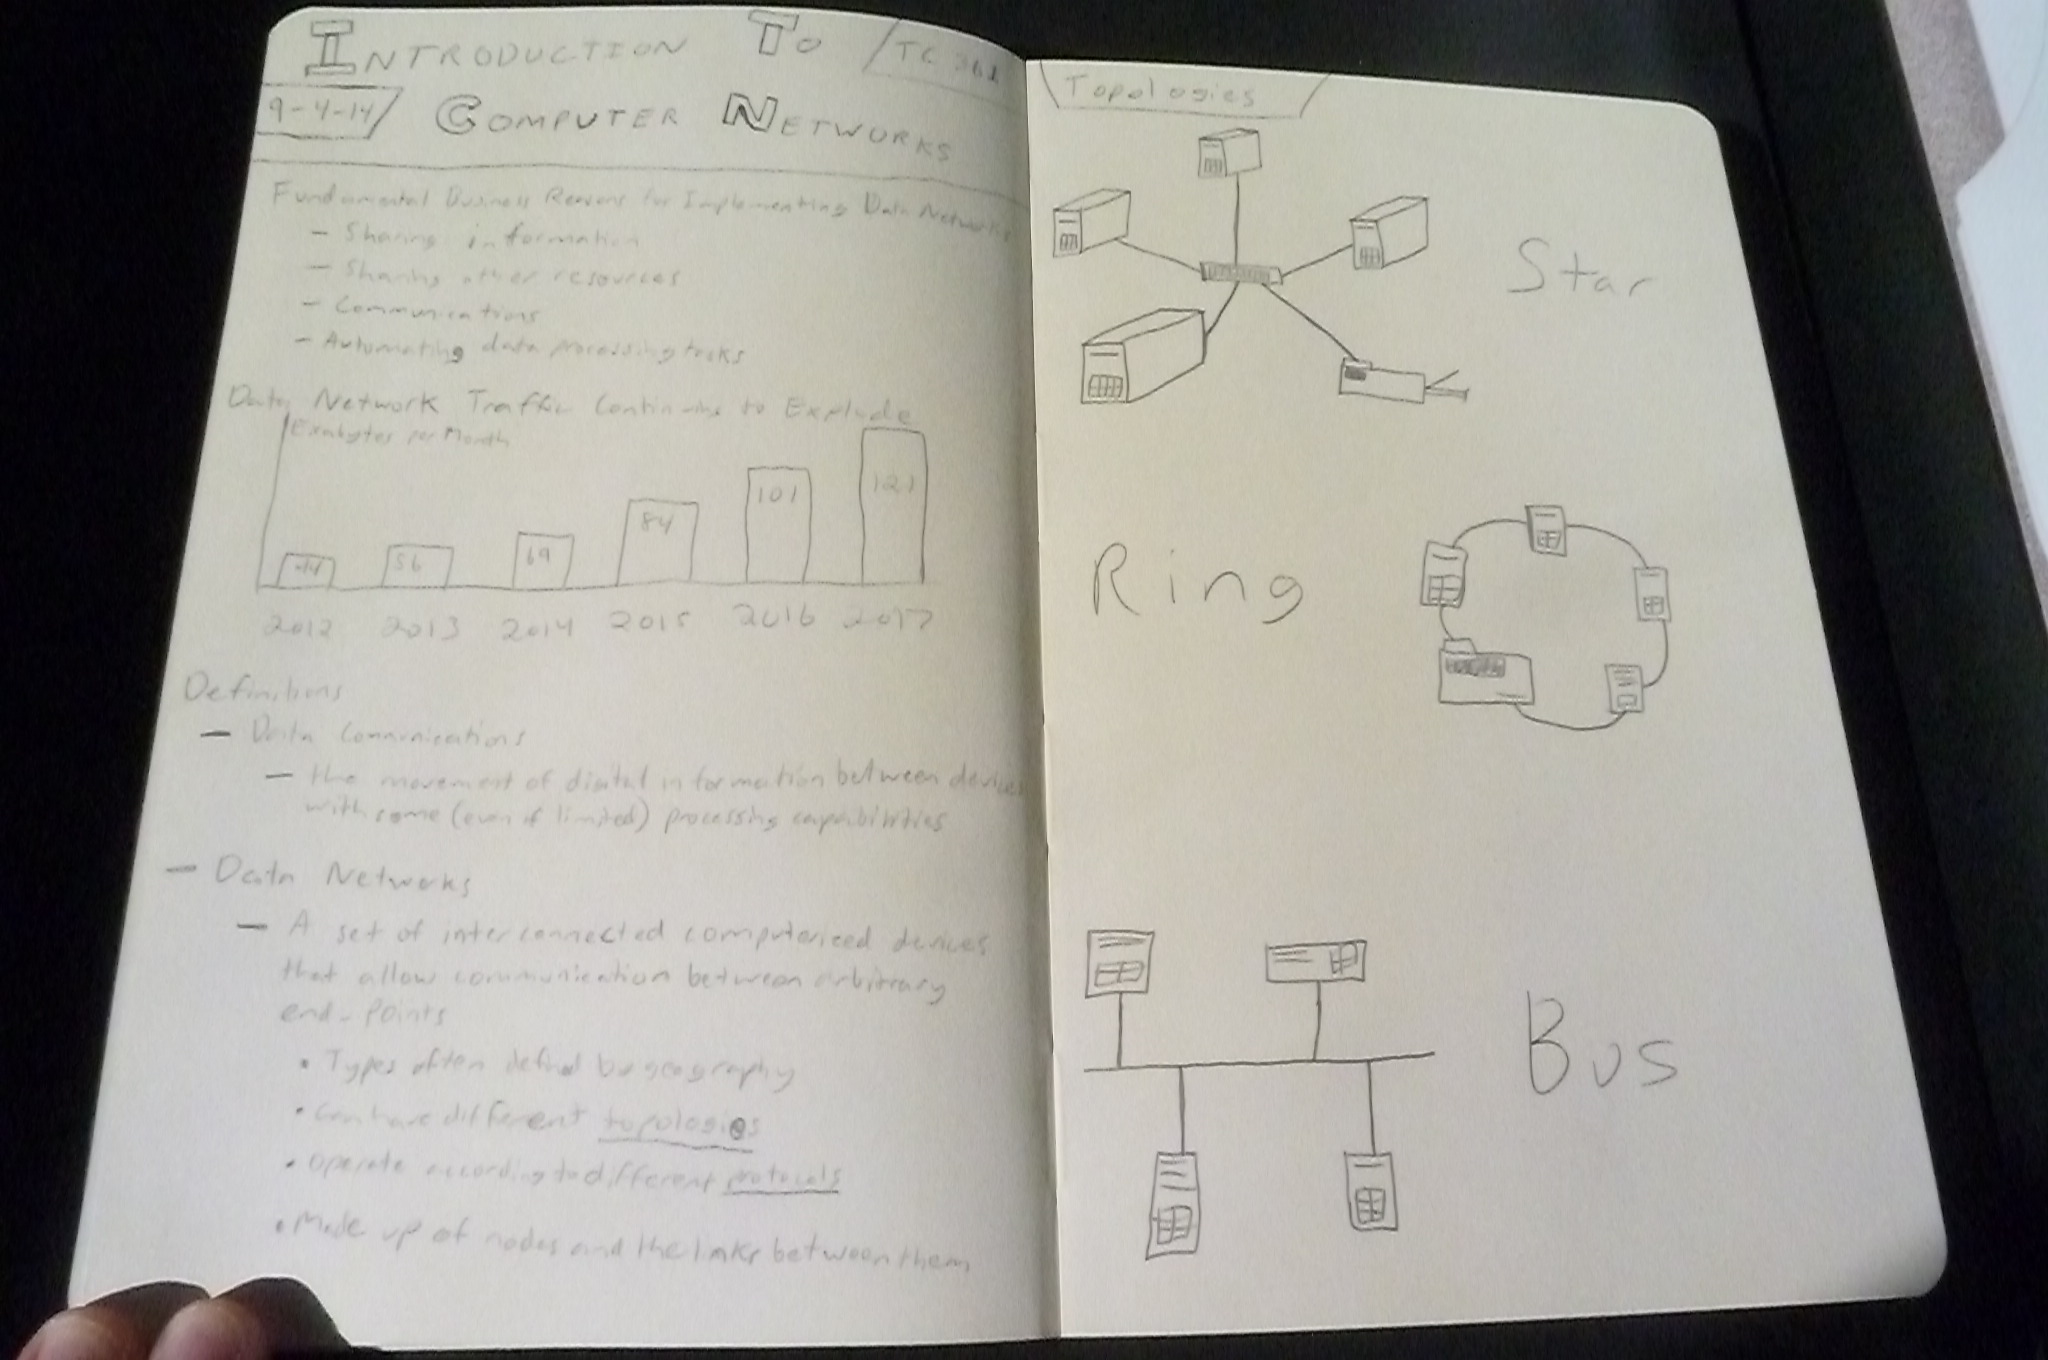 INTRODUCTION TO
TC 361
9-4-14
COMPUTER NETWORKS
Fundamental Business Reasons for Implementing Data Networks
- Sharing information
- Sharing other resources
- Communications
- Automating data processing tasks
Data Network Traffic Continues to Explode
Exabytes per Month
44 56 69 84 101 121
2012 2013 2014 2015 2016 2017
Definitions
- Data Communications
- the movement of digital information between devices
with some (even if limited) processing capabilities
- Data Networks
- A set of interconnected computerized devices
that allow communication between arbitrary
end-points
• Types often defined by geography
• Can have different topologies
• Operate according to different protocols
• Made up of nodes and the links between them
Topologies
Star
Ring
Bus